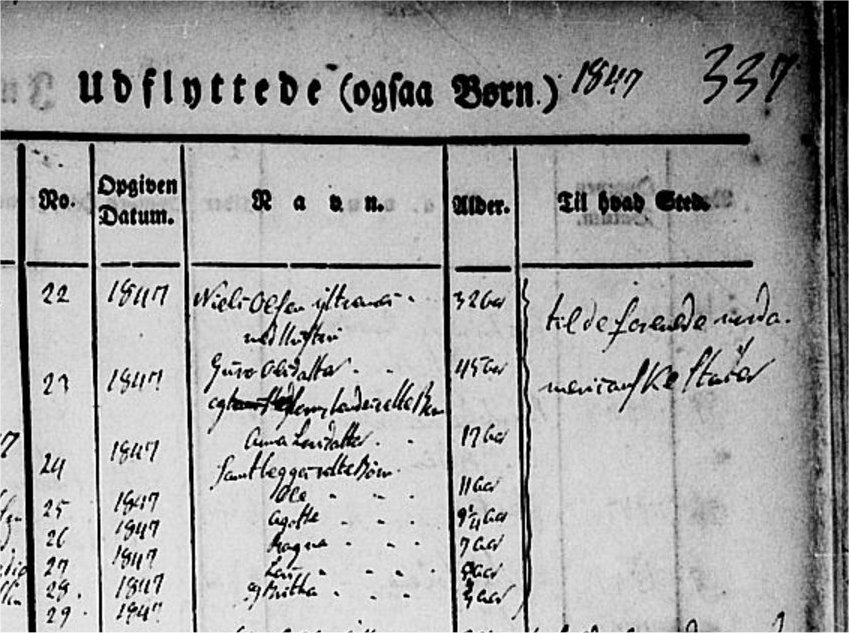 Udflyttede (ogsaa Børn.) 1847 337
No. Opgiven Datum. Navn. Alder. Til hvad Sted.
22 1847 Niels Olsen 32 Aar
til de forenede norda.
med Hustru
Guro Olsdatter 45 Aar
23 1847
Anna Larsdatter 17 Aar
24 1847
samt begges ægte Børn
Ole 11 Aar
25 1847 Agathe 9 1/4 Aar
26 1847 Ragna 7 Aar
27 1847 Lars Aar
28. 1847 og Britha Aar
29. 1847